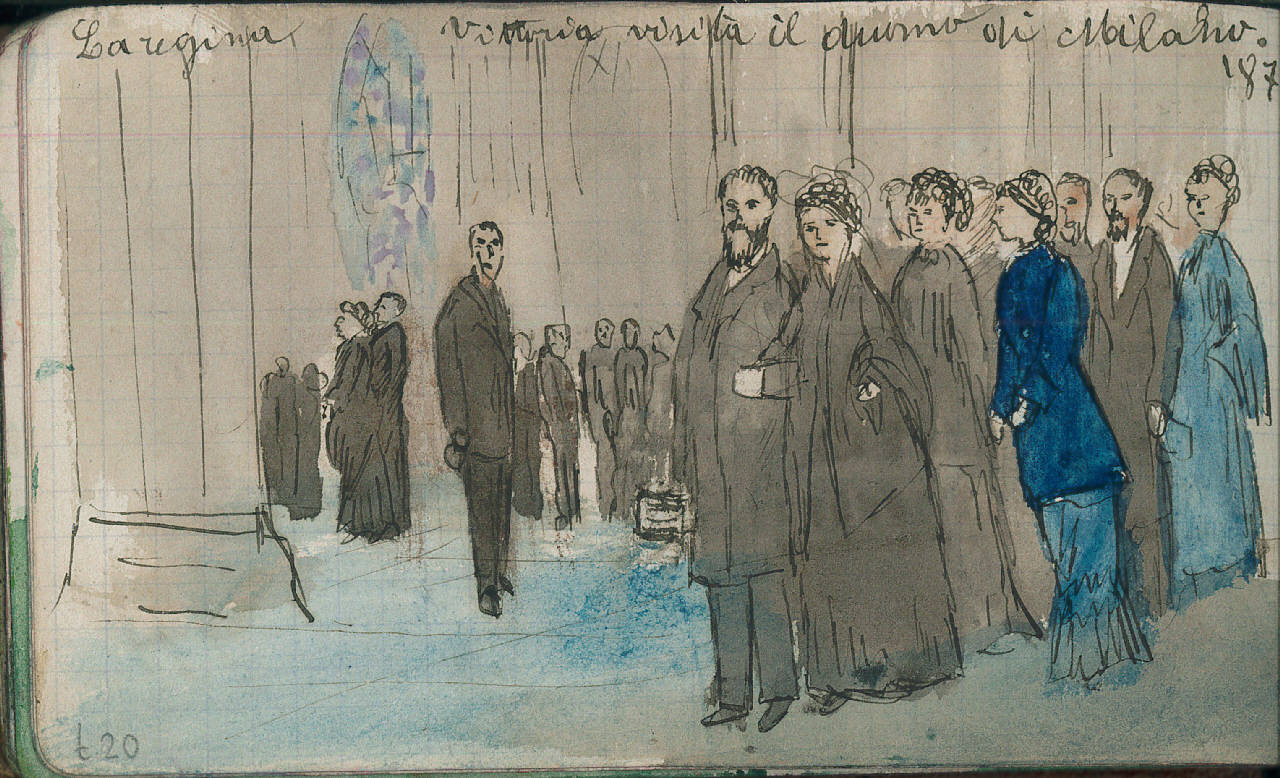 La regina Vittoria visita il duomo di Milano.
'87
t. 20